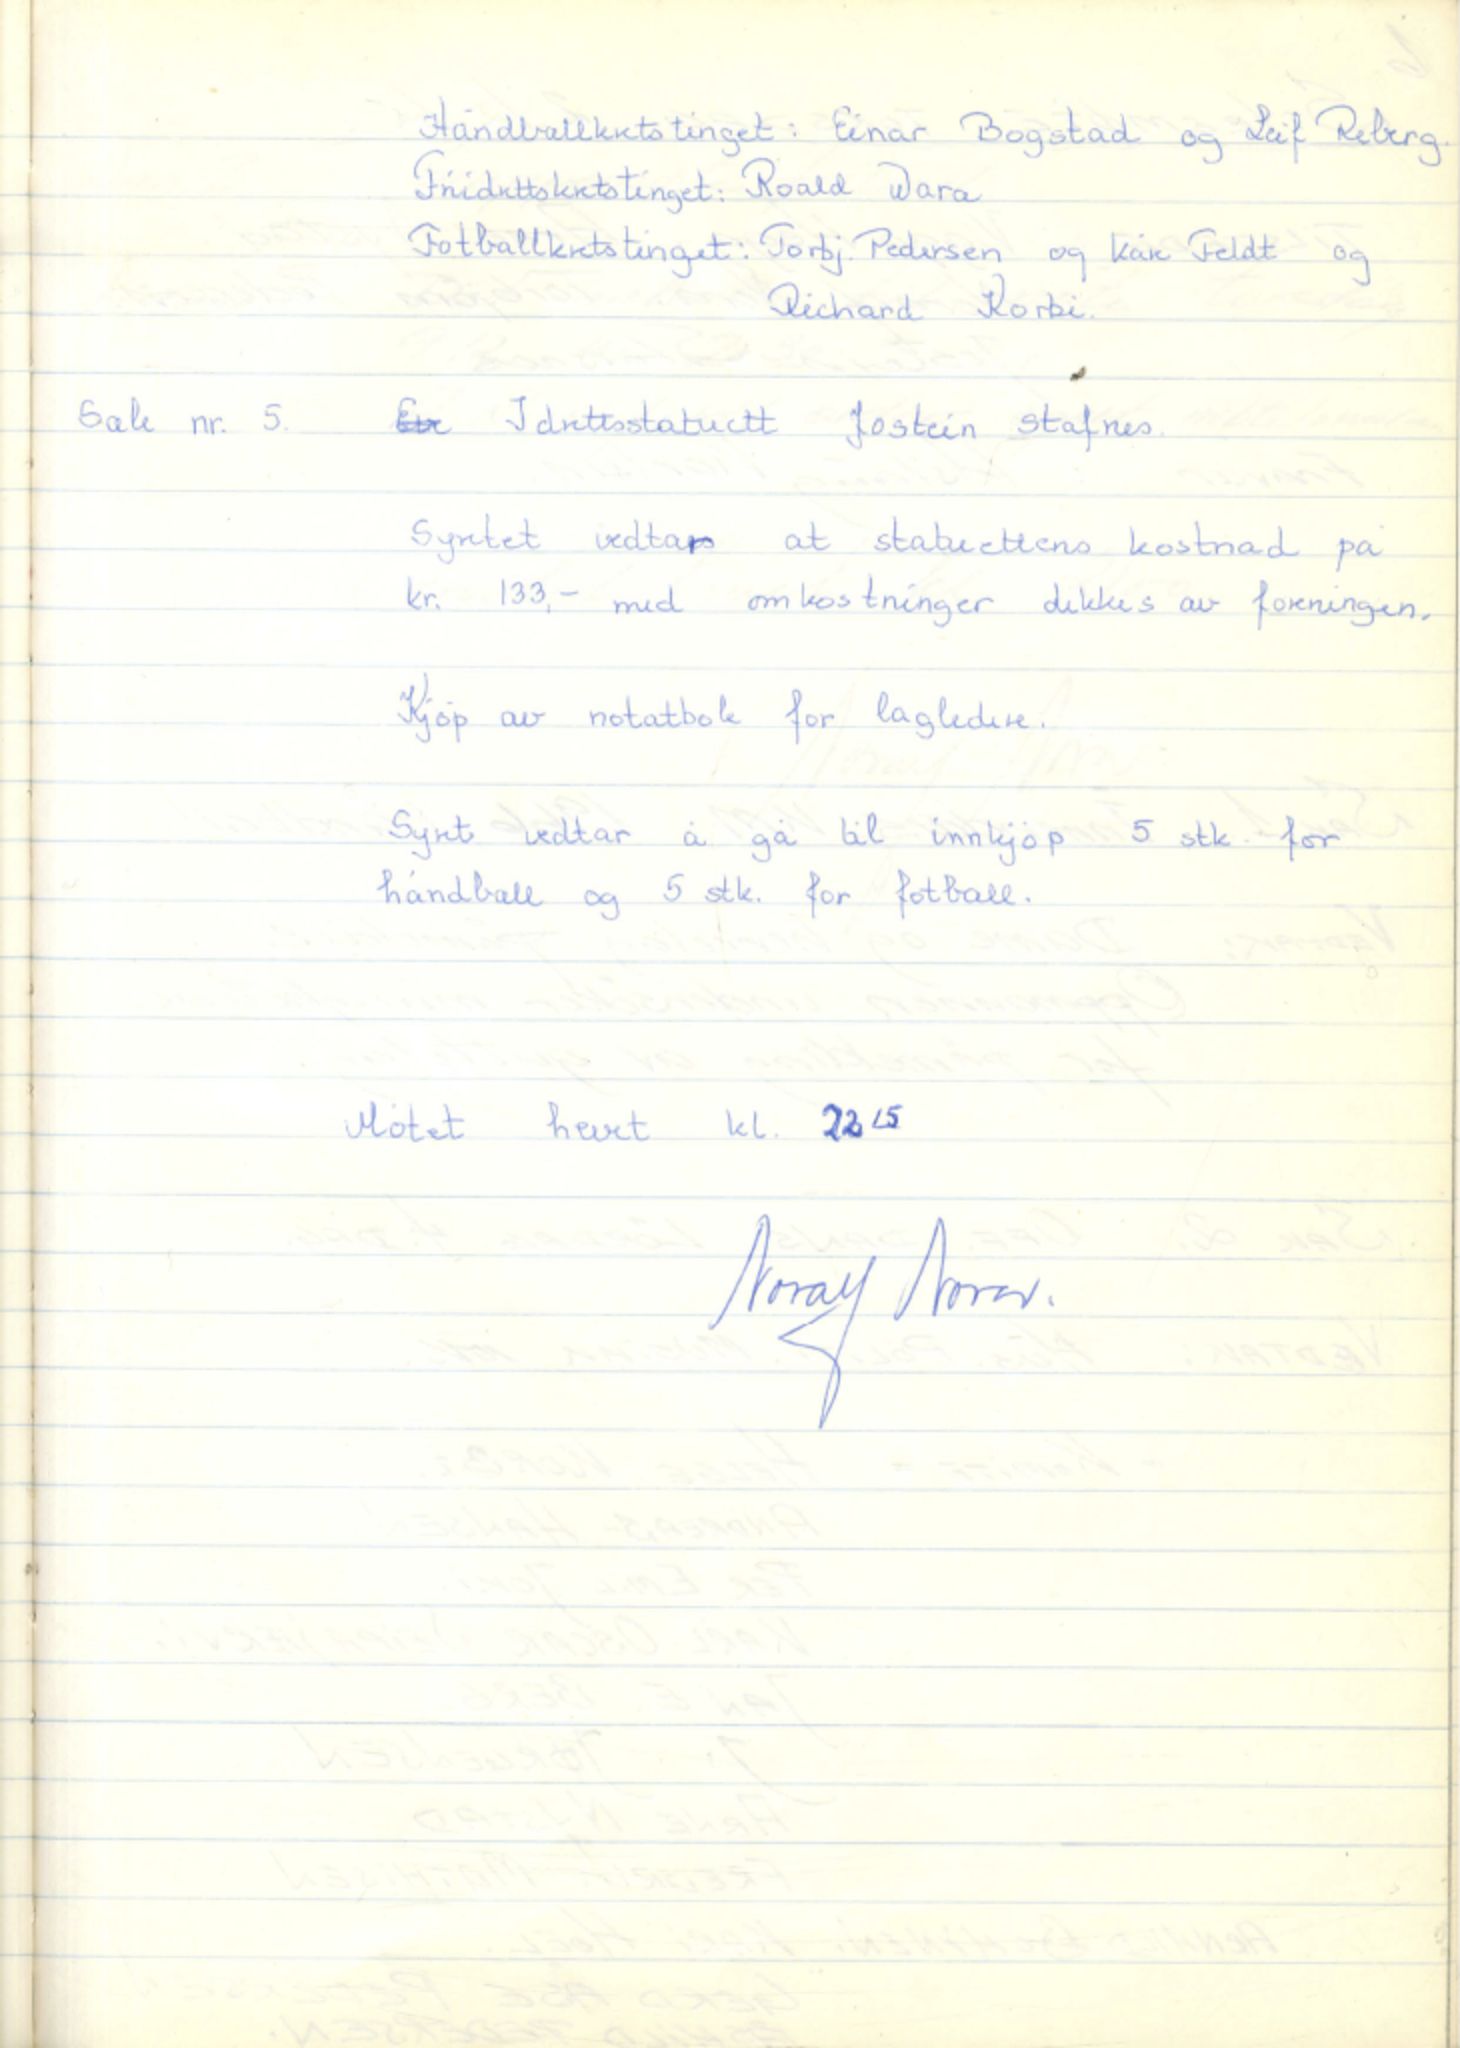 Håndballkretstinget: Einar Bogstad og Leif Reberg.
Friidrettskretstinget: Roald Wara
Fotballkretstinget: Torbj. Pedersen og Kåre Feldt og
Richard Korbi.
Sak nr. 5. Idrettsstatuett Jostein Stafnes.
Syret vedtar at statuettens kostnad på
kr. 133,- med omkostninger dekkes av foreningen.
Kjøp av notatbok for lagledere.
Syret vedtar å gå til innkjøp 5 stk. for
håndball og 5 stk. for fotball.
Møtet hevet kl. 22 15
Noralf